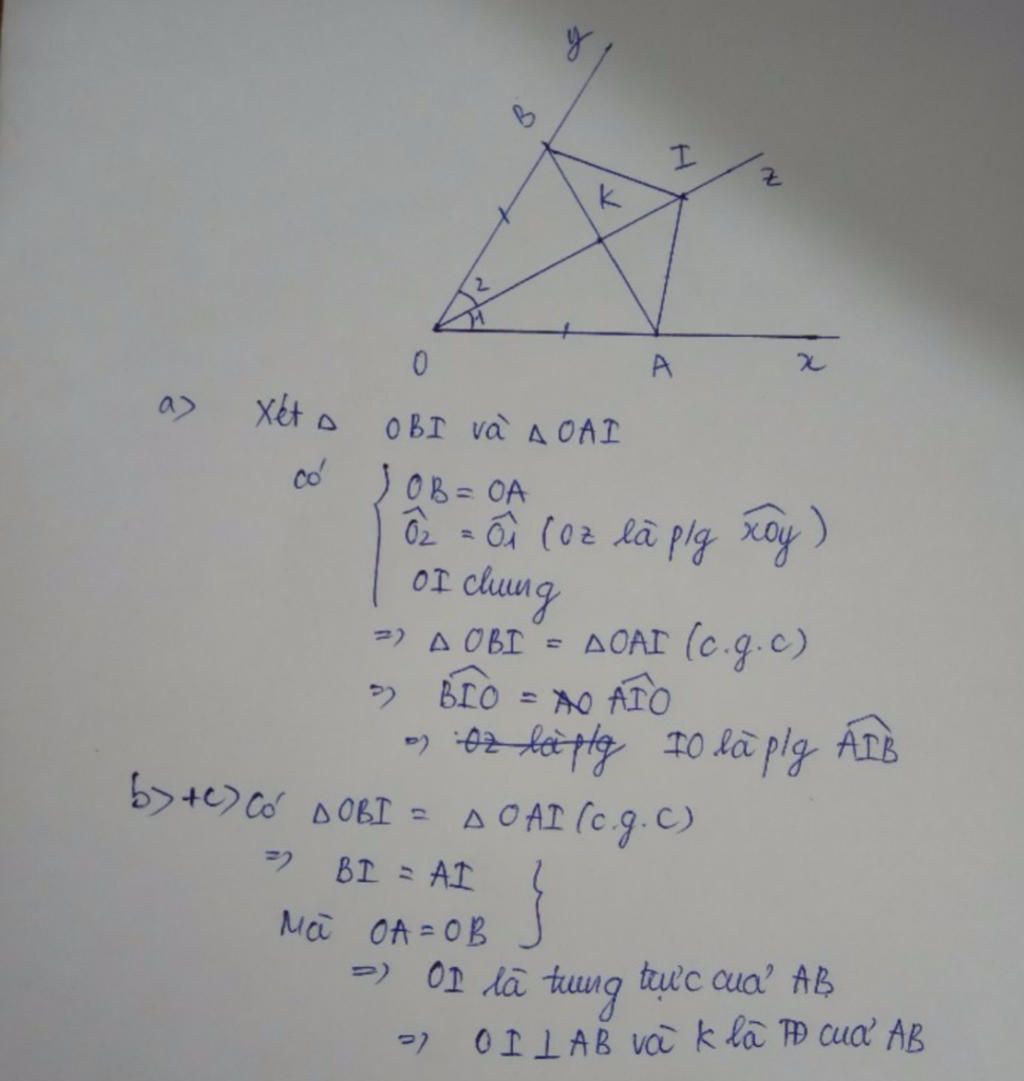 y
B
I
z
K
2
1
O
A
x
a> Xét Δ OBI và Δ OAI
có { OB = OA
Ô2 = Ô1 (Oz là p/g x̂Oy)
OI chung
=> Δ OBI = Δ OAI (c.g.c)
=> B̂IO = AO ÂIO
=> Oz là p/g IO là p/g ÂIB
b> + c> Có Δ OBI = Δ OAI (c.g.c)
=> BI = AI }
Mà OA = OB
=> OI là trung trực của AB
=> OI ⊥ AB và K là TĐ của AB